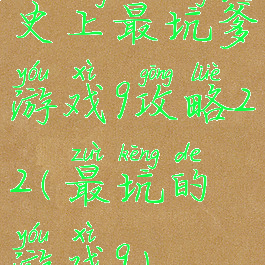 史上最坑爹
yóu xì gōng lüè
游戏9攻略2
zuì kēng de
2(最坑的
yóu xì
游戏9)